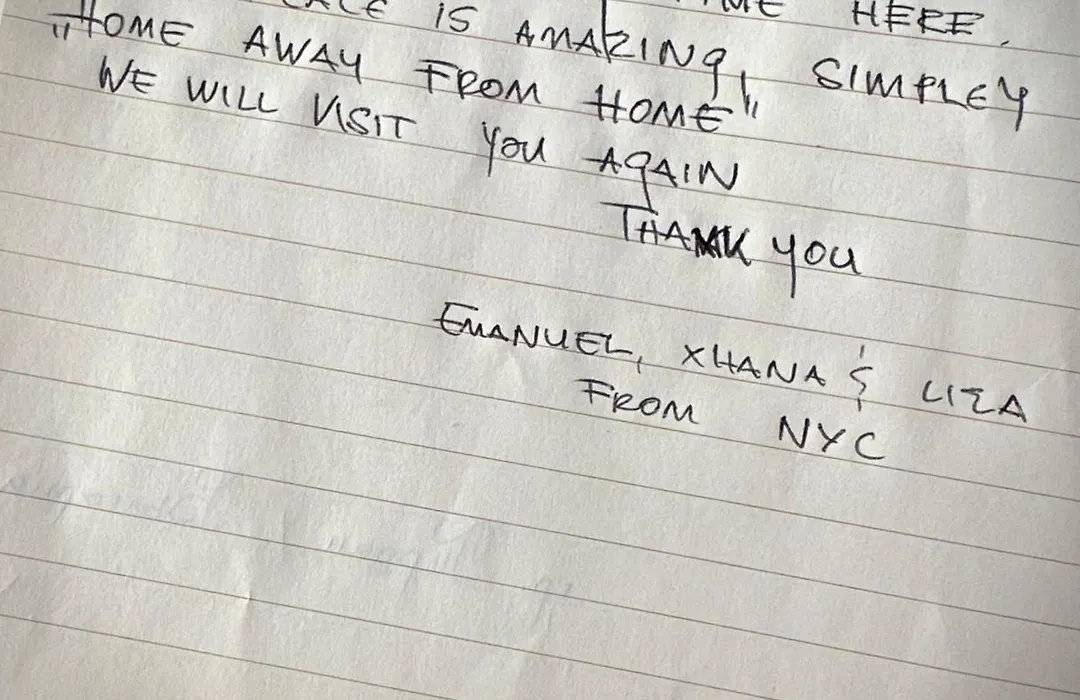 IS AMAZING, SIMPLEY HERE.
„HOME AWAY FROM HOME"
WE WILL VISIT YOU AGAIN
THANK YOU
EMANUEL, XHANA & LIZA
FROM NYC